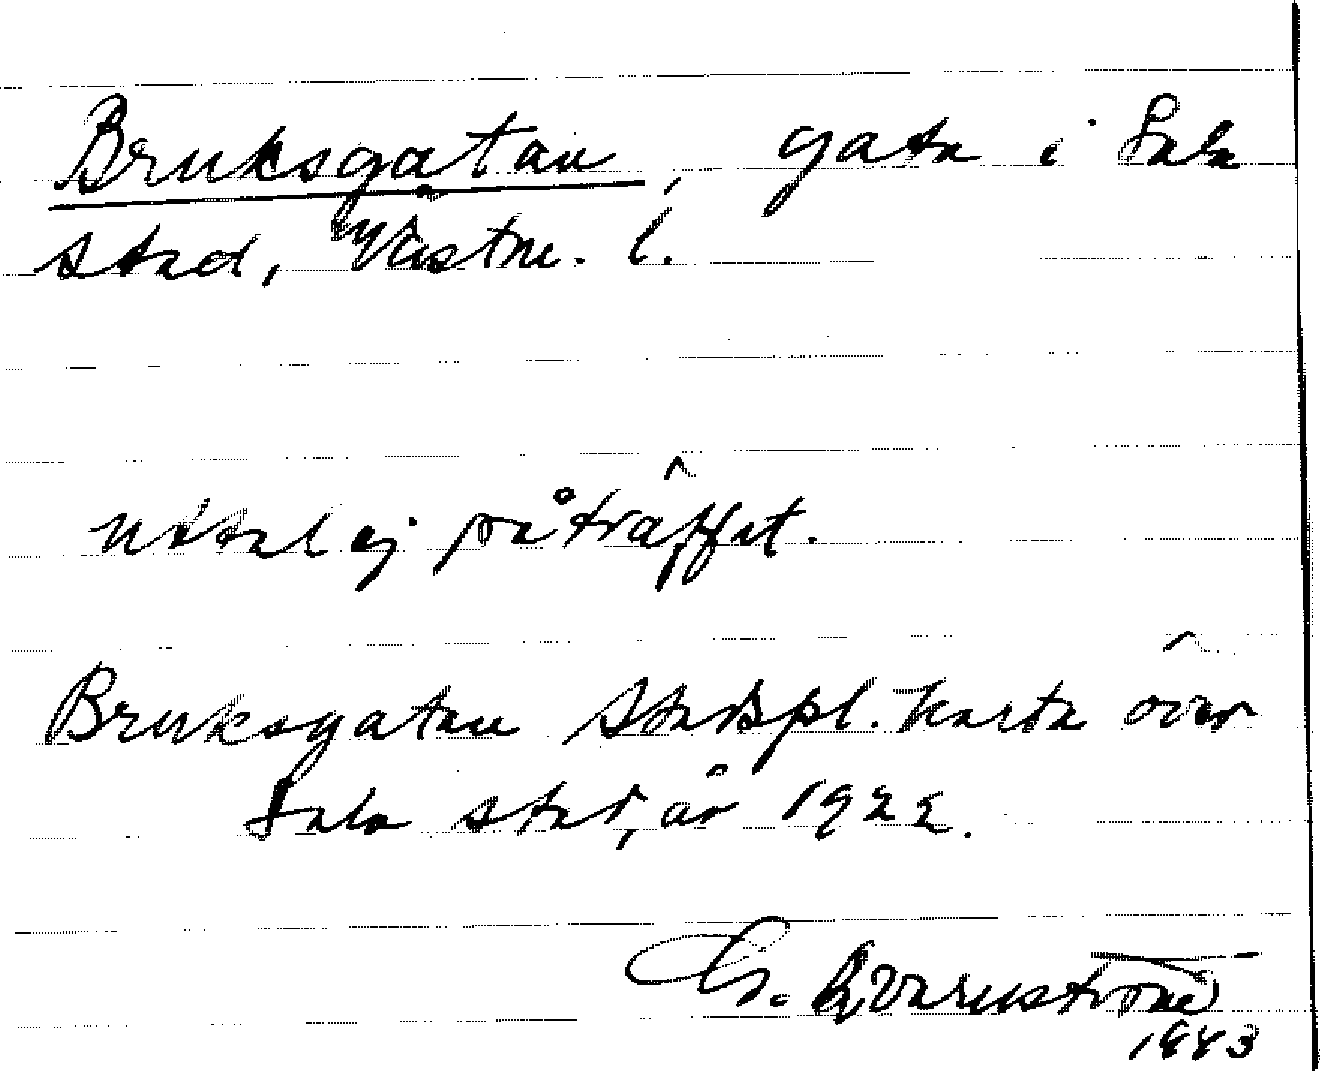 Bruksgatan, gata i Sala
stad, Västm. l.
Uttal ej påträffat.
Bruksgatan Stadspl. karta över
Sala stad, år 1922.
G. Qvarnström
1943